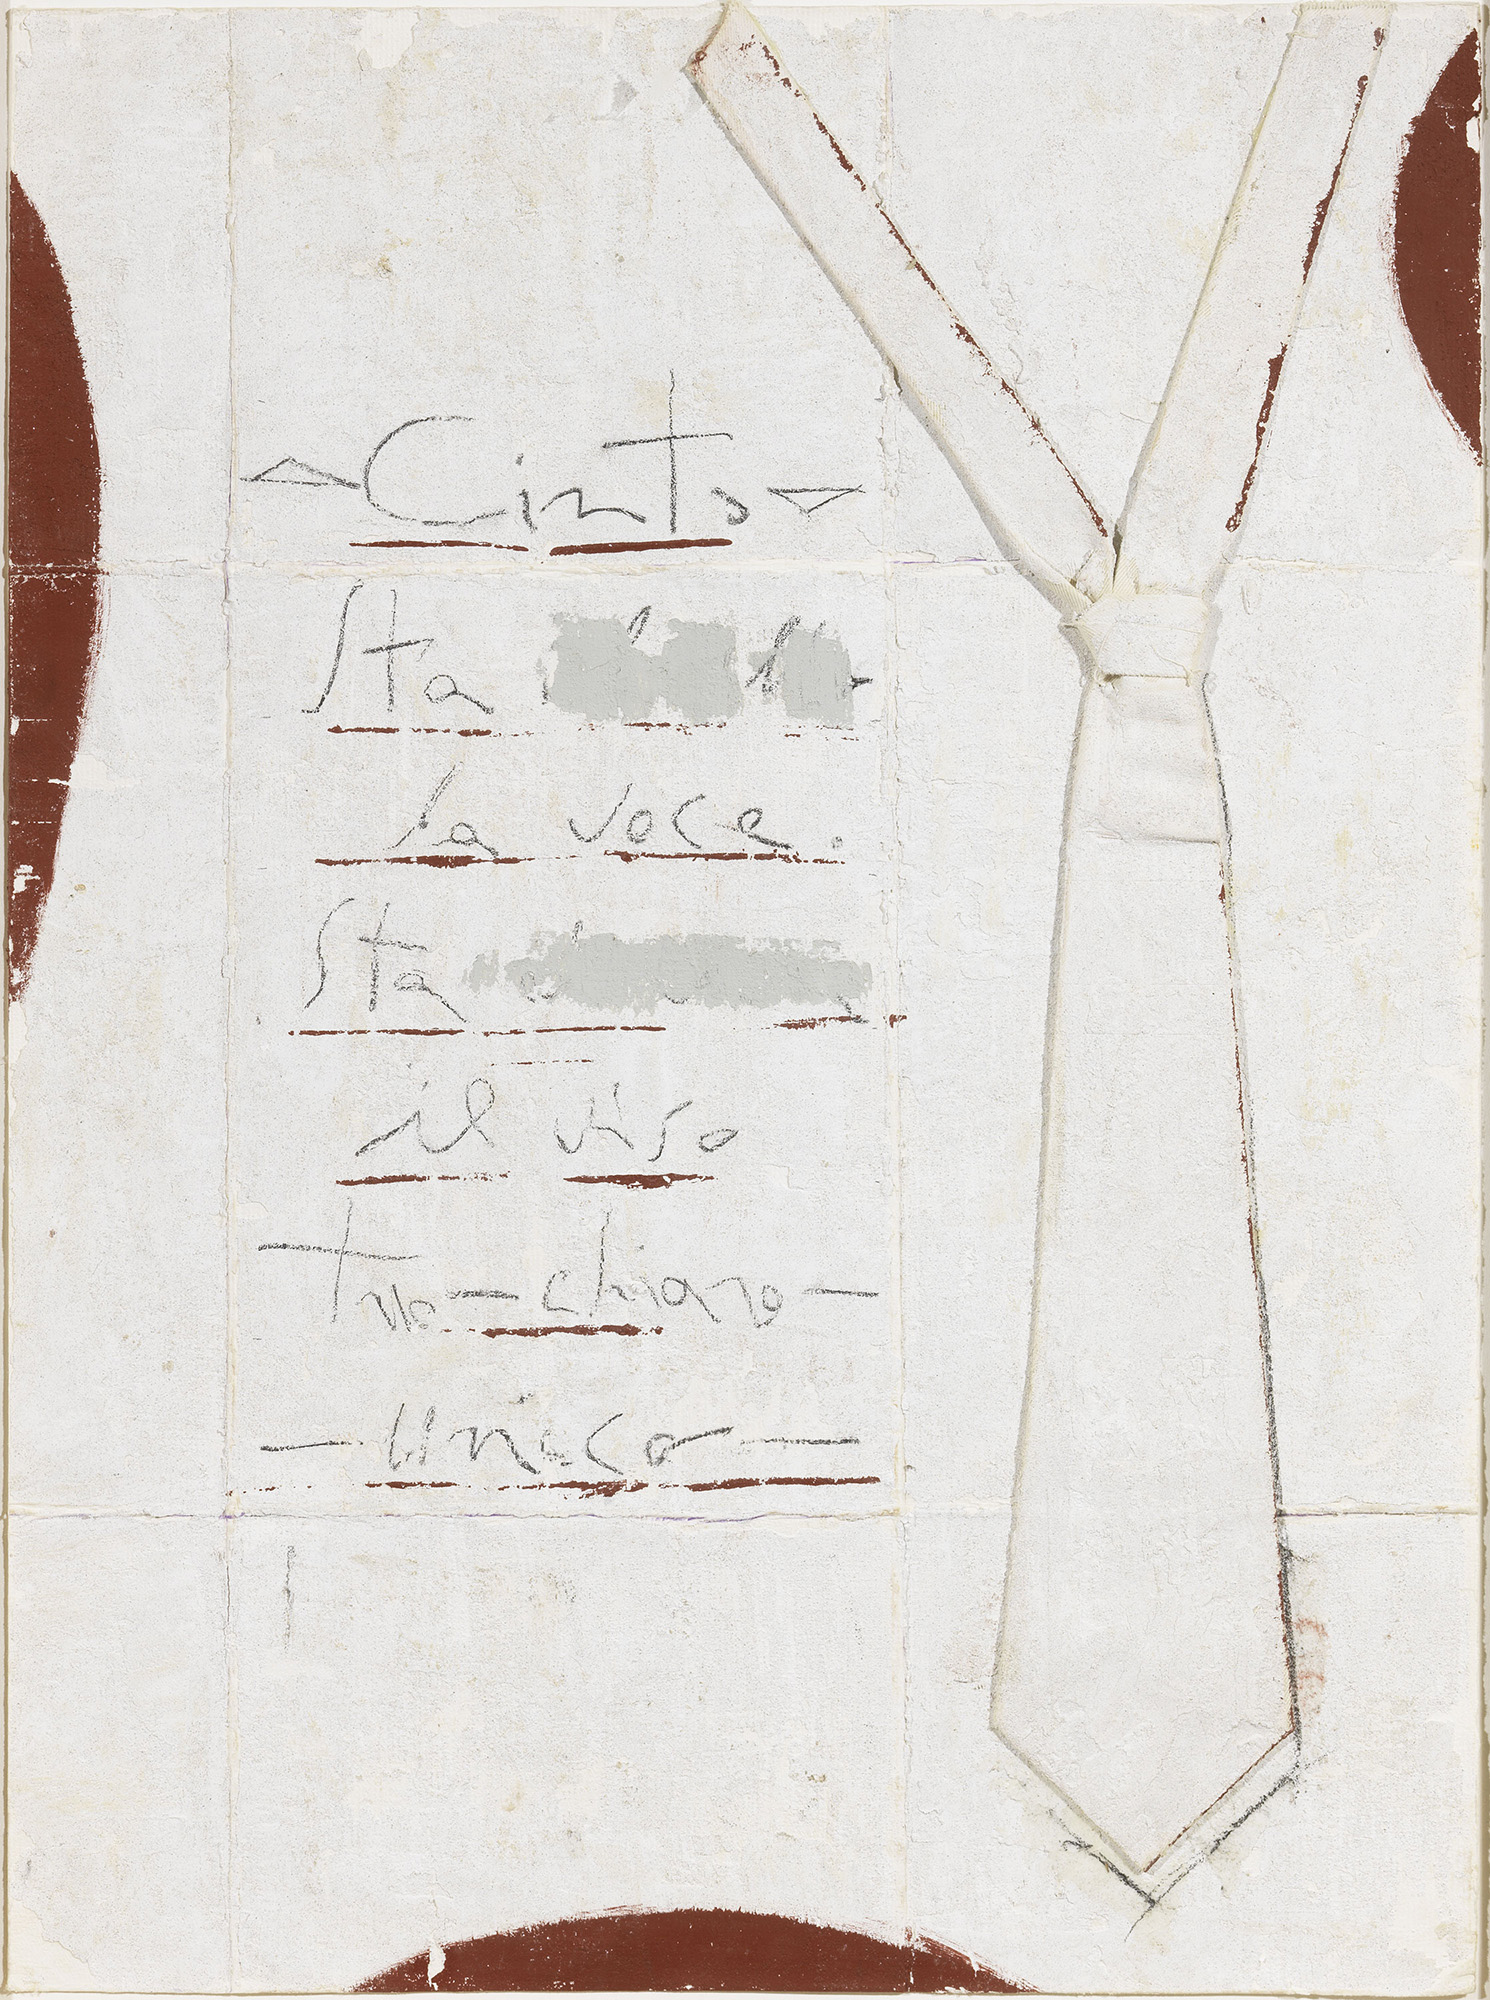 Cinto
Sta
la voce.
Sta
il viso
tuo - chiaro -
- Unico -